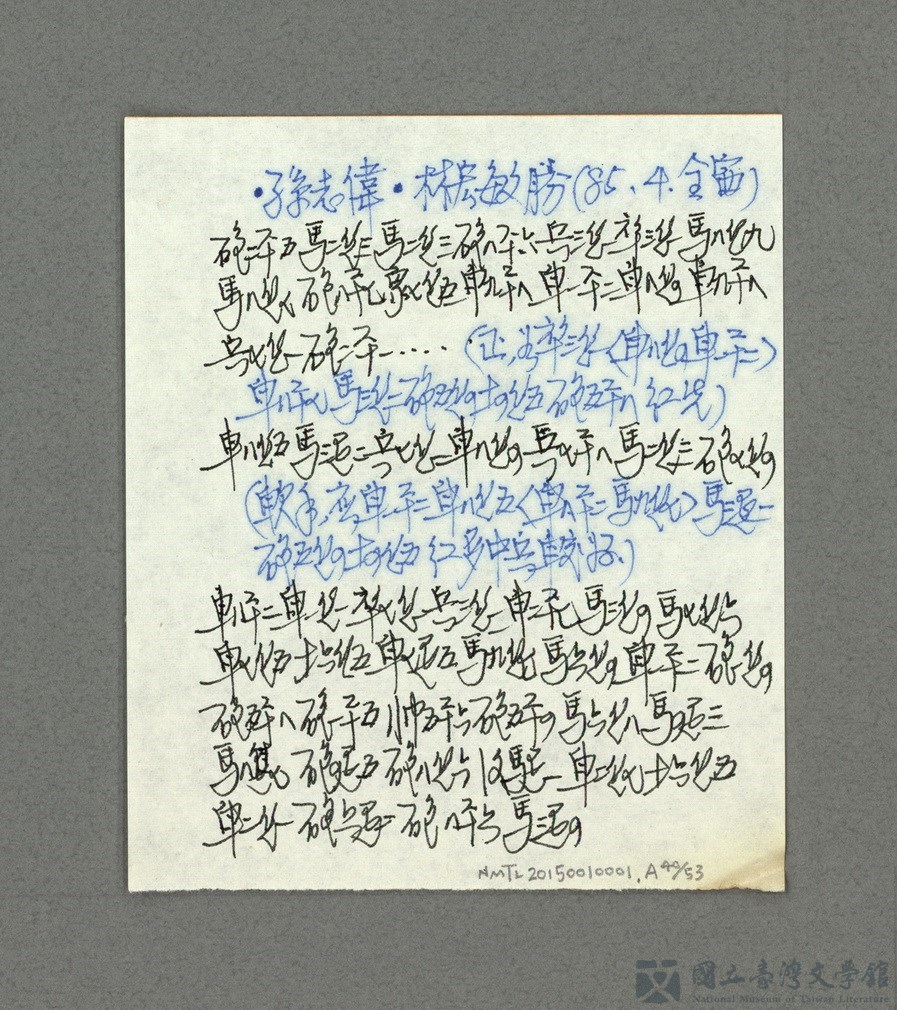 ・孫志偉・林宏敏勝(85.4.全
砲二平五馬二進三馬二進三砲八平六兵三進一卒三進一馬八進九
馬八進七砲八平七象七進五車九平八車一平二車八進四車九平八
兵七進一砲二平一....(正,為卒三進一<車八進四車一平二>
車八平七馬三進二砲五進四士四進五砲五平八紅先)
車八進五馬三退二兵七進一車八進四兵七平八馬二進三砲七進四
(軟手,應車一平二車八進五<車平二馬九進七>馬三退一
砲五進四士四進五紅多中兵車較好.)
車一平二車進一卒七進一兵三進一車二平七馬三進四馬七進六
車七進五士六進五車七退五馬九進七馬六進四車一平二砲一進四
砲五平八砲一平五帥五平六砲五平四馬六進八馬四退三
馬八進七砲退五砲八進六馬退一車二進七士六進五
車二進一砲六退二砲八平六馬三退四
NMTL20150010001.A44/53
國立臺灣文學館
National Museum of Taiwan Literature